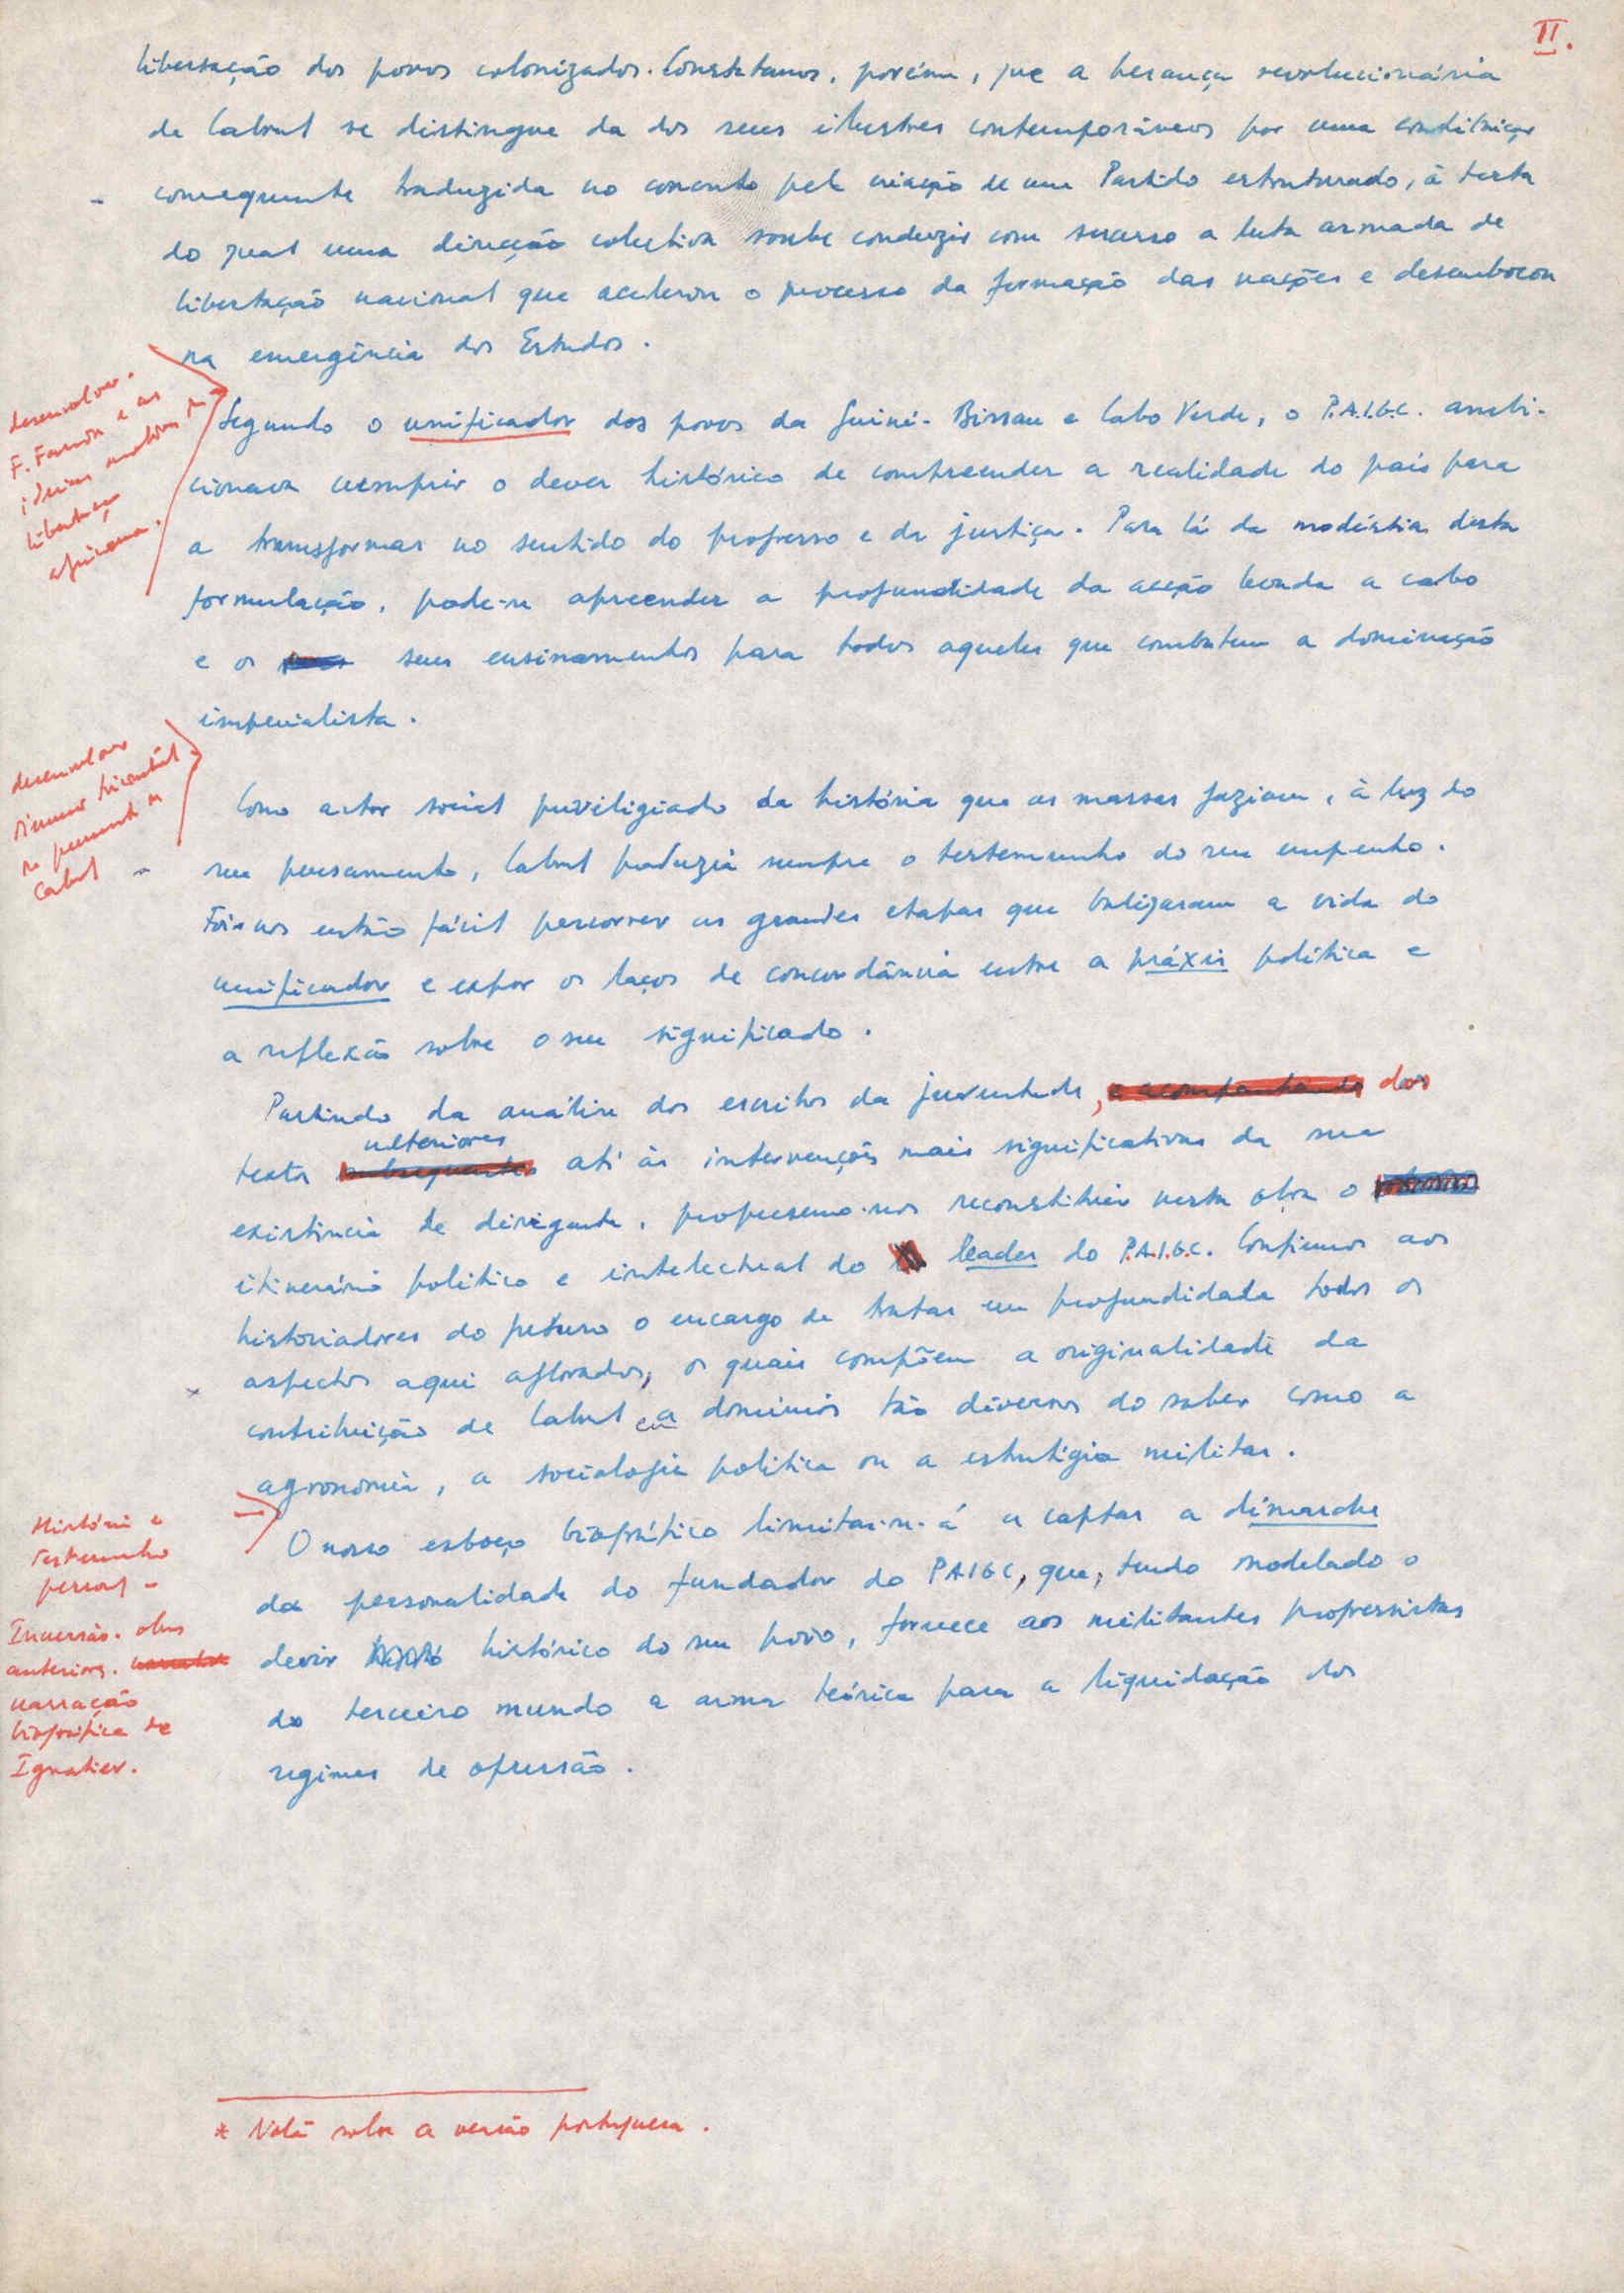 II.
libertação dos povos colonizados. Constatamos, porém, que a herança revolucionária
de Cabral se distingue da dos seus ilustres contemporâneos por uma contribuição
consequente traduzida no concreto pela criação de um Partido estruturado, à testa
do qual uma direcção colectiva soube conduzir com sucesso a luta armada de
libertação nacional que acelerou o processo da formação das nações e desembocou
na emergência dos Estados.
desenvolver.
F. Fanon e as
ideias
libertação
africana.
Segundo o unificador dos povos da Guiné-Bissau e Cabo Verde, o P.A.I.G.C. ambi-
cionava cumprir o dever histórico de compreender a realidade do país para
a transformar no sentido do progresso e da justiça. Para lá da modéstia desta
formulação, pode-se apreender a profundidade da acção levada a cabo
e os seus ensinamentos para todos aqueles que combatem a dominação
imperialista.
desenvolver
no pensamento
Cabral
Como actor social priviligiado da história que as massas faziam, à luz do
seu pensamento, Cabral produzia sempre o testemunho do seu empenho.
Foi-nos então fácil percorrer as grandes etapas que balizaram a vida do
unificador e expor os laços de concordância entre a práxis política e
a reflexão sobre o seu significado.
Partindo da análise dos escritos da juventude, dos
textos ulteriores até às intervenções mais significativas da sua
existência de dirigente, propusemo-nos reconstituir nesta obra o
itinerário político e intelectual do leader do P.A.I.G.C. Confiamos aos
historiadores do futuro o encargo de tratar em profundidade todos os
aspectos aqui aflorados, os quais compõem a originalidade da
contribuição de Cabral em domínios tão diversos do saber como a
agronomia, a sociologia política ou a estratégia militar.
História e
Testemunho
pessoal -
Inversão. obras
anteriores.
narração
biográfica de
Ignatiev.
O nosso esboço biográfico limitar-se-á a captar a démarche
da personalidade do fundador do PAIGC, que, tendo modelado o
devir histórico do seu povo, fornece aos militantes progressistas
do terceiro mundo a arma teórica para a liquidação dos
regimes de opressão.
* Nota sobre a versão portuguesa.